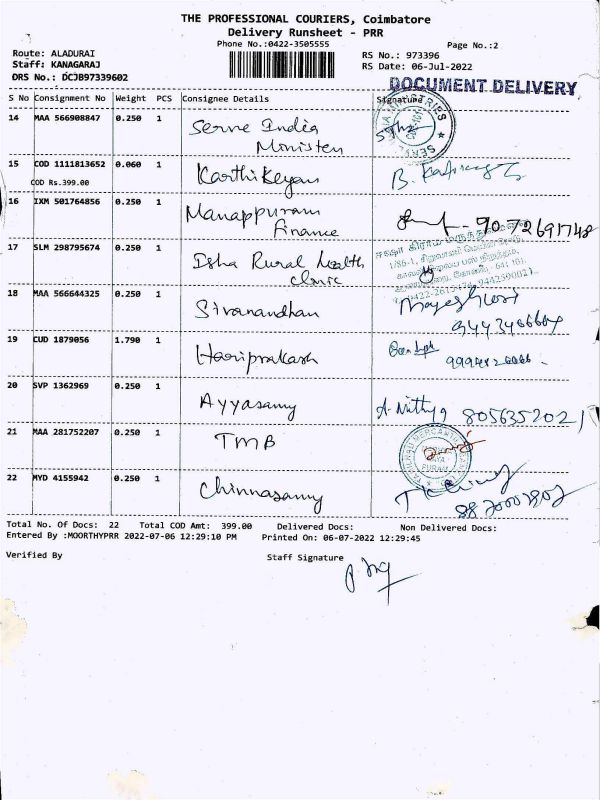 THE PROFESSIONAL COURIERS, Coimbatore
Delivery Runsheet - PRR
Phone No.:0422-3505555
Page No.:2
Route: ALADURAI
Staff: KANAGARAJ
DRS No.: DCJB97339602
RS No.: 973396
RS Date: 06-Jul-2022
DOCUMENT DELIVERY
S No Consignment No Weight PCS Consignee Details Signature
14 MAA 566908847 0.250 1 Serve India
Ministery
15 COD 1111813652 0.060 1 Karthikeyan
COD Rs.399.00
16 IXM 501764856 0.250 1 Manappuram
Finance 9072691748
17 SLM 298795674 0.250 1 Isha Rural health
clinic
18 MAA 566644325 0.250 1 Sivanandhan
19 CUD 1879056 1.790 1 Hariprakash
20 SVP 1362969 0.250 1 Ayyasamy A. Nithya 8056352021
21 MAA 281752207 0.250 1 TMB
22 MYD 4155942 0.250 1 Chinnasamy
Total No. Of Docs: 22 Total COD Amt: 399.00 Delivered Docs: Non Delivered Docs:
Entered By :MOORTHYPRR 2022-07-06 12:29:10 PM Printed On: 06-07-2022 12:29:45
Verified By Staff Signature